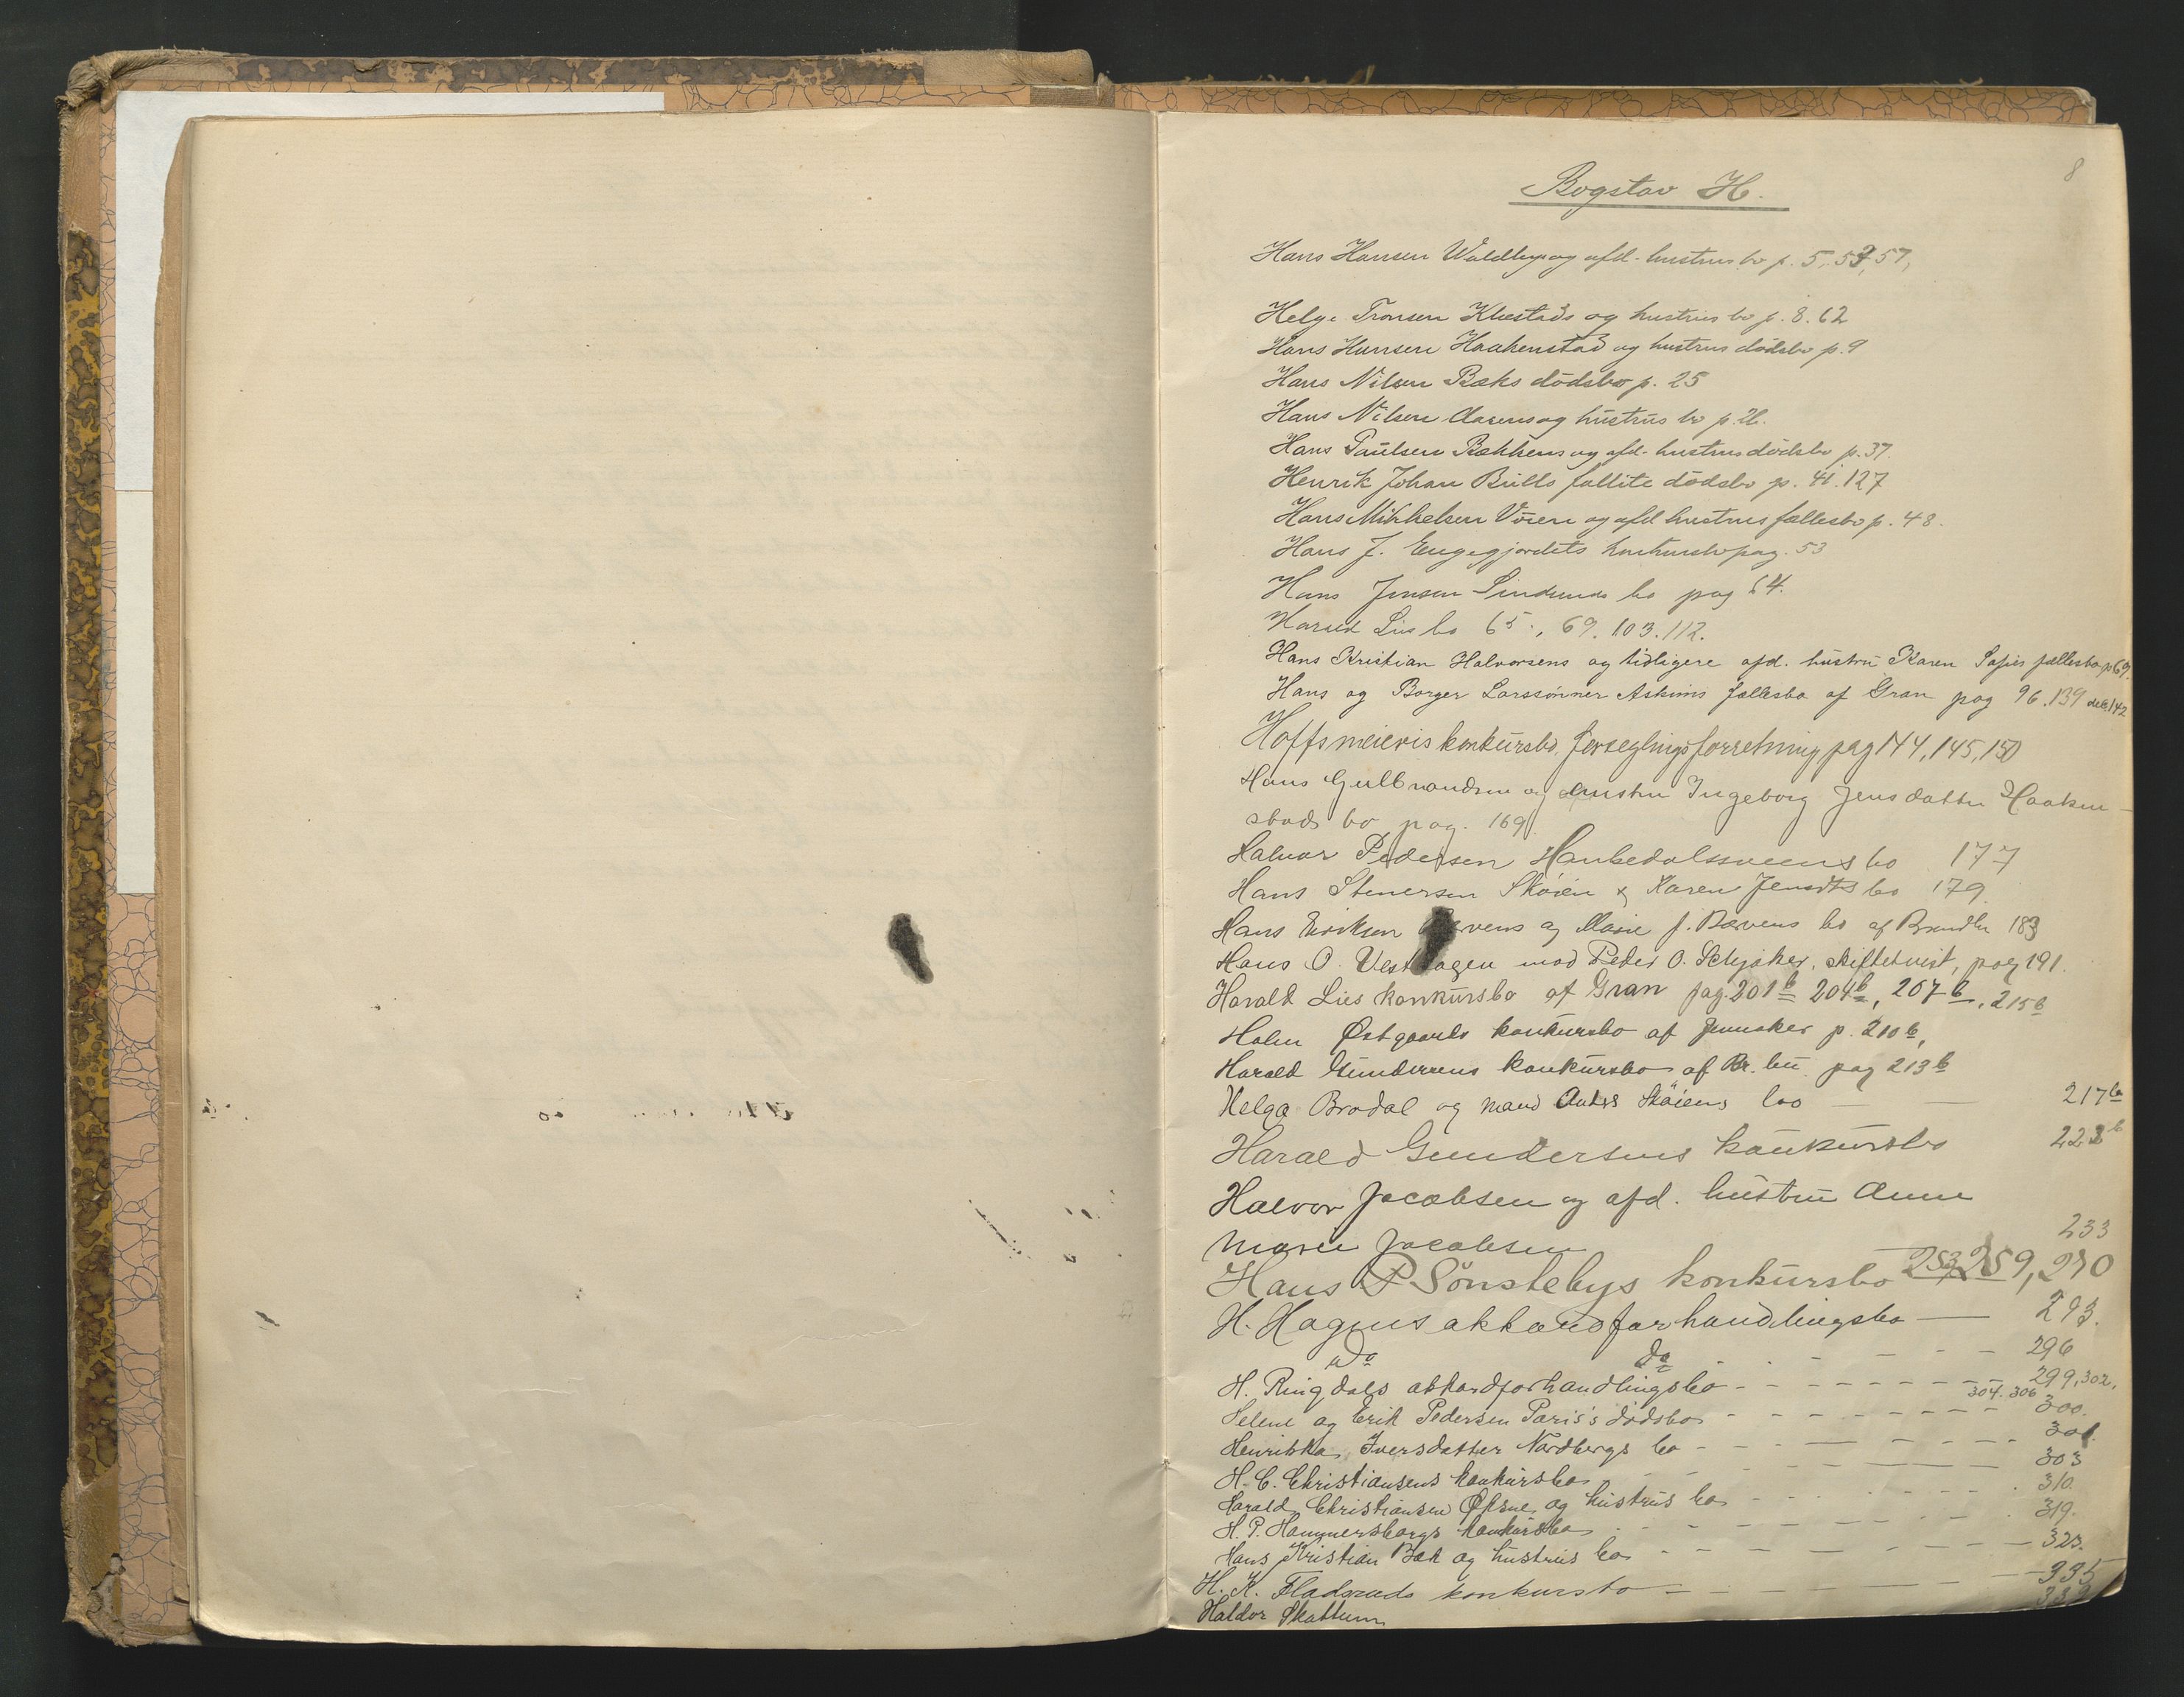 8
Bogstav H.
Hans Hansen og afd. hustrus bo p. 5, 57,
Helge Tronsen Klæstads og hustrus bo p. 8. 62
Hans Hansen Haakenstad og hustrus dödsbo p. 9
Hans Nilsen Bæks dödsbo p. 25
Hans Nilsen og hustrus bo p. 26.
Hans Paulsen Bækkens og afd. hustrus dödsbo p. 37.
Henrik Johan Bulls fallite dödsbo p. 41. 127
Hans Mikkelsen Vöien og afd hustrus fællesbo p. 48.
Hans J. Engegjordets konkursbo pag. 53
Hans Jensen bo pag 64.
Harald Lies bo 65., 69. 103. 112.
Hans Kristian Halvorsens og tidligere afd. hustru Karen Sofies fællesbo p 69.
Hans og Borger Larssönner Askims fællesbo af Gran pag 96. 139 142
Hoffsmeieris konkursbo, forseglingsforretning pag 144, 145, 150
Hans Gulbrandsen og hustru Ingeborg Jensdatter Haaken-
stads bo pag. 169
Halvor Pedersen bo 177
Hans Stenersen Sköien & Karen Jensdts bo 179.
Hans Eriksen og Marie J. Bævens bo af Brandbu 183
Hans O. Vesthagen mod Peder O. Schjaker, skiftetvist, pag 191.
Harald Lies konkursbo af Gran pag. 201b 204b, 207b, 215b
Holm Østgaards konkursbo af Jevnaker p. 210b,
Harald Gundersens konkursbo af Br. bu pag 213b
Helga Brodal og mand Sköiens bo — — 217b
Harald Gundersens konkursbo 223b
Halvor Jacobsen og afd. hustru Anne
Marie Jacobsen 233
Hans P Sönstebys konkursbo 253, 259, 270
H. Hagens akkordforhandlingsbo — 293.
Do do - - - 296
H. Ringdals akkordforhandlingsbo - - - 299, 302,
304. 306
Helene og Erik Pedersen Paris's dödsbo - - - 300.
Henrikka Iversdatter Nordbergs bo - - - 301.
H. C. Christiansens konkursbo - - - 303
Harald Christiansen Øksne og hustrus bo - - - 310.
H. P. Hammersborgs konkursbo - - - 319.
Hans Kristian Bæk og hustrus bo - - - 323.
H. K. Fladsruds konkursbo - - - 335
Haldor Skattum